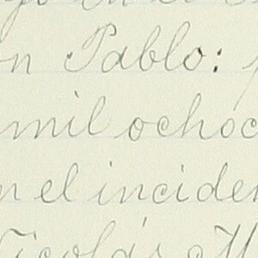 en el
n Pablo:
mil ochoc
n el inciden
Nicolás M